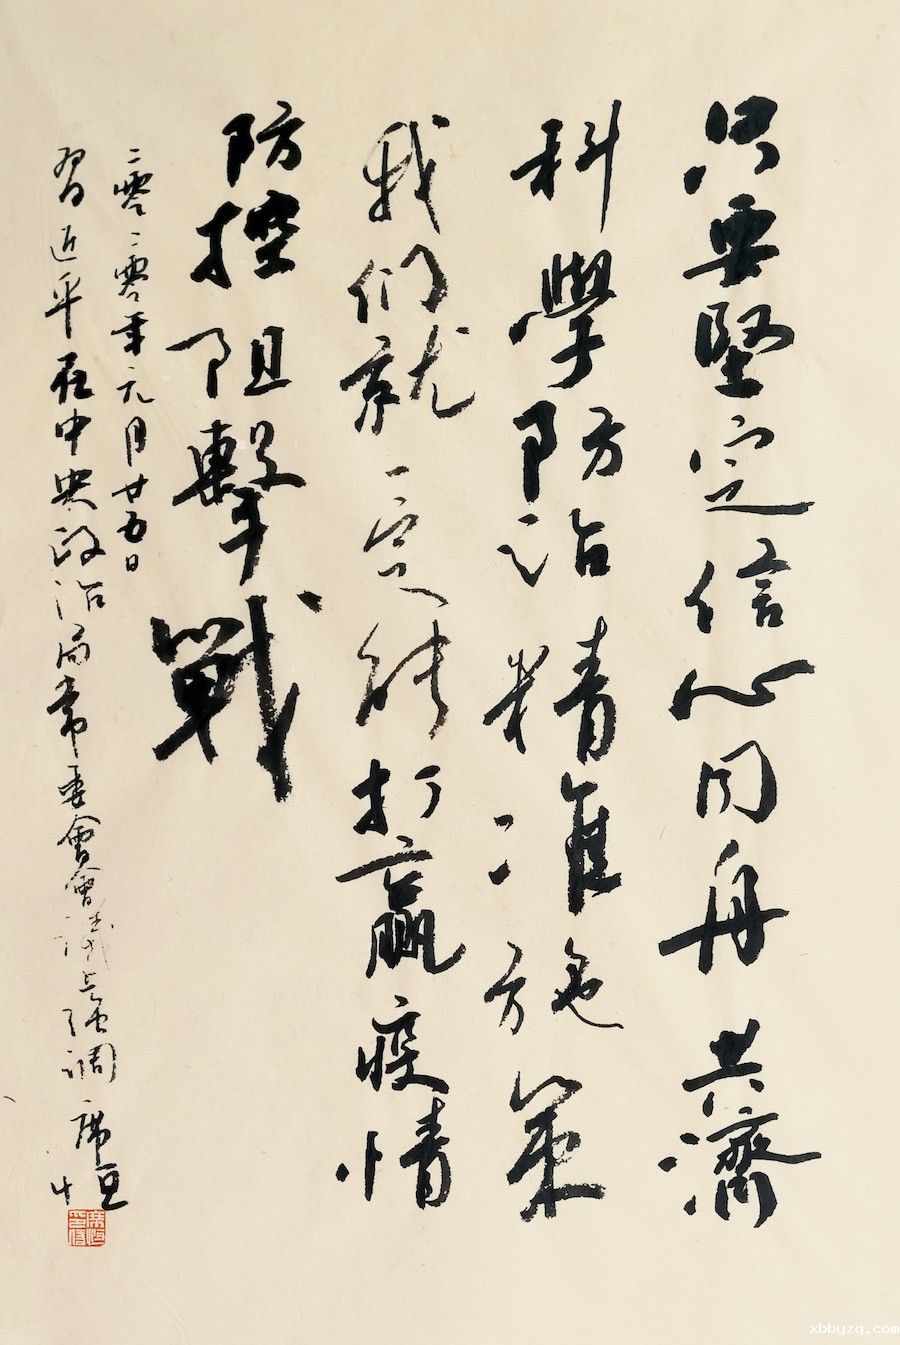 只要堅定信心同舟共濟
科學防治精准施策
我们就一定能打赢疫情
防控阻擊戰
二零二零年元月廿五日
習近平在中央政治局常委會會議上强调
席恒
xbbyzq.com